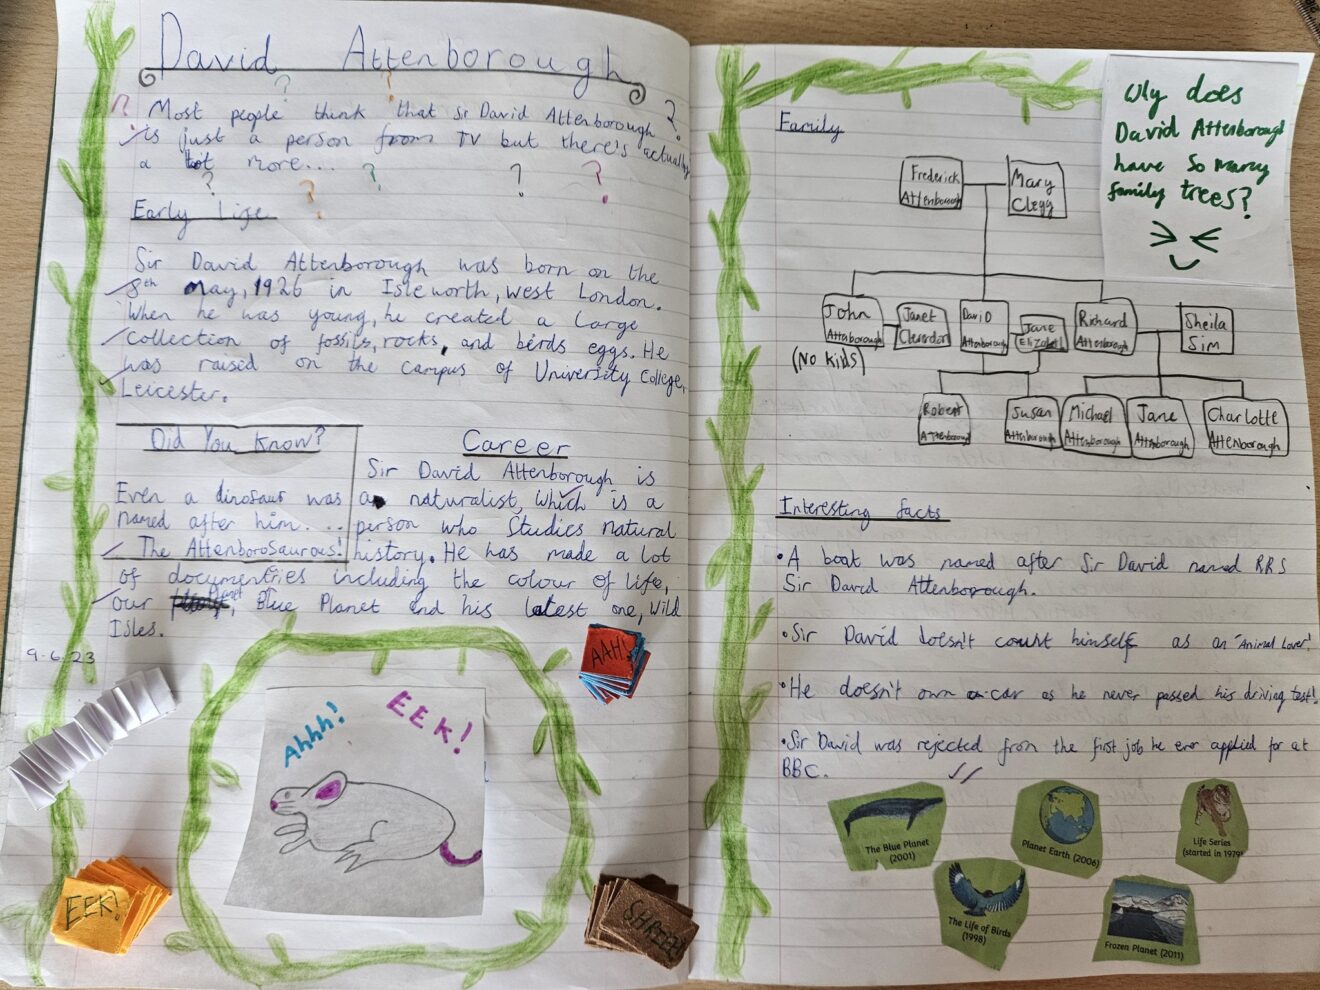 David Attenborough
? Most people think that Sir David Attenborough ?
is just a person from TV but there's actually
a lot more...
? ? ? ? ?
Early Life
Sir David Attenborough was born on the
8th May, 1926 in Isleworth, West London.
When he was young, he created a large
collection of fossils, rocks, and birds eggs. He
was raised on the campus of University College,
Leicester.
Did You Know?
Even a dinosaur was
named after him....
The Attenborosaurous!
Career
Sir David Attenborough is
a naturalist, which is a
person who studies natural
history. He has made a lot
of documentries including the colour of life,
our Planet, Blue Planet and his latest one, Wild
Isles.
9.6.23
Ahhh!
EEK!
AAH!
EEK!
SHREEK
Family
Why does
David Attenborough
have so many
family trees?
Frederick
Attenborough
Mary
Clegg
John
Attenborough
(No kids)
Janet
Clarendon
David
Attenborough
Jane
Elizabeth
Richard
Attenborough
Sheila
Sim
Robert
Attenborough
Susan
Attenborough
Michael
Attenborough
Jane
Attenborough
Charlotte
Attenborough
Interesting facts
•A boat was named after Sir David named RRS
Sir David Attenborough.
•Sir David doesn't count himself as an "Animal Lover!"
•He doesn't own a car as he never passed his driving test!
•Sir David was rejected from the first job he ever applied for at
BBC.
The Blue Planet
(2001)
Planet Earth (2006)
Life Series
(started in 1979)
The Life of Birds
(1998)
Frozen Planet (2011)